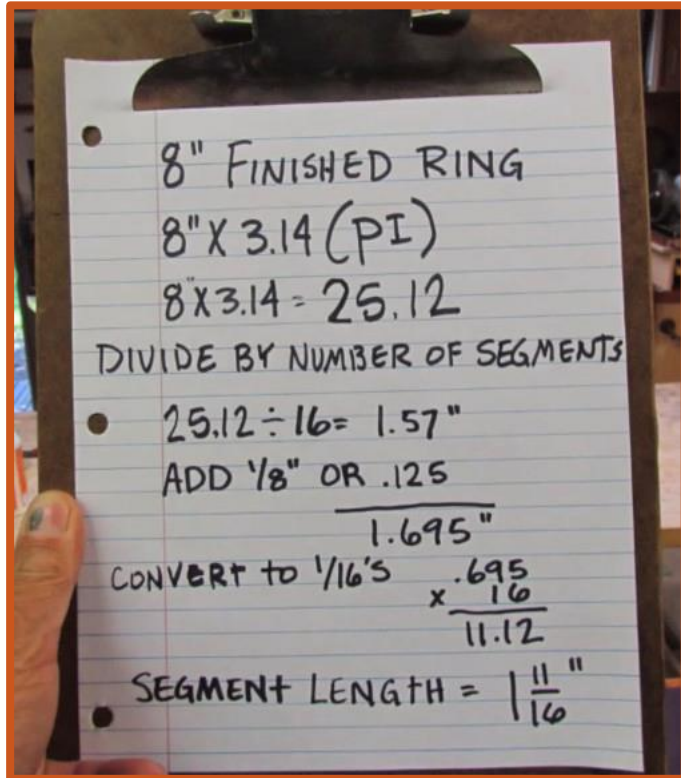 8" FINISHED RING
8" X 3.14 (PI)
8" X 3.14 = 25.12
DIVIDE BY NUMBER OF SEGMENTS
25.12 ÷ 16 = 1.57"
ADD 1/8" OR .125
1.695"
CONVERT to 1/16'S .695
x 16
11.12
SEGMENt LENGtH = 1 11/16"